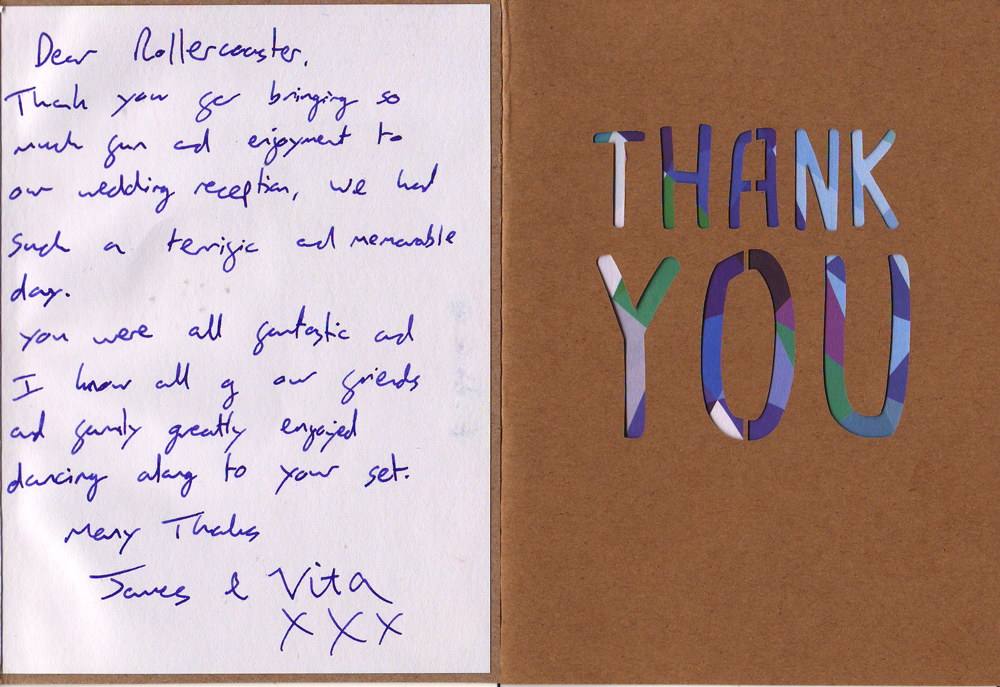 Dear Rollercoaster,
Thank you for bringing so
much fun and enjoyment to
our wedding reception, we had
such a terrific and memorable
day.
You were all fantastic and
I know all of our friends
and family greatly enjoyed
dancing along to your set.
Many Thanks
James & Vita
XXX
THANK
YOU